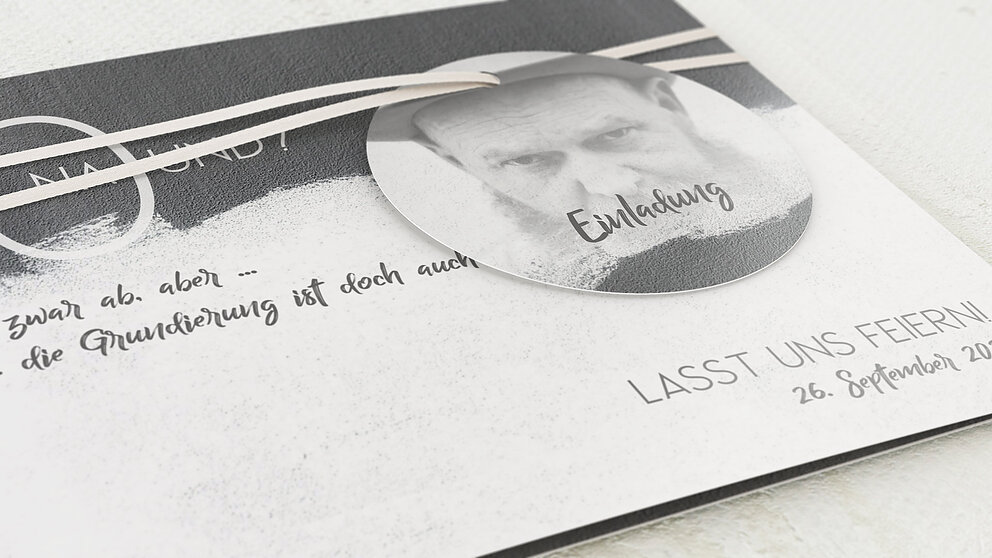 NA UND?
zwar ab, aber ...
die Grundierung ist doch auch
Einladung
LASST UNS FEIERN!
26. September